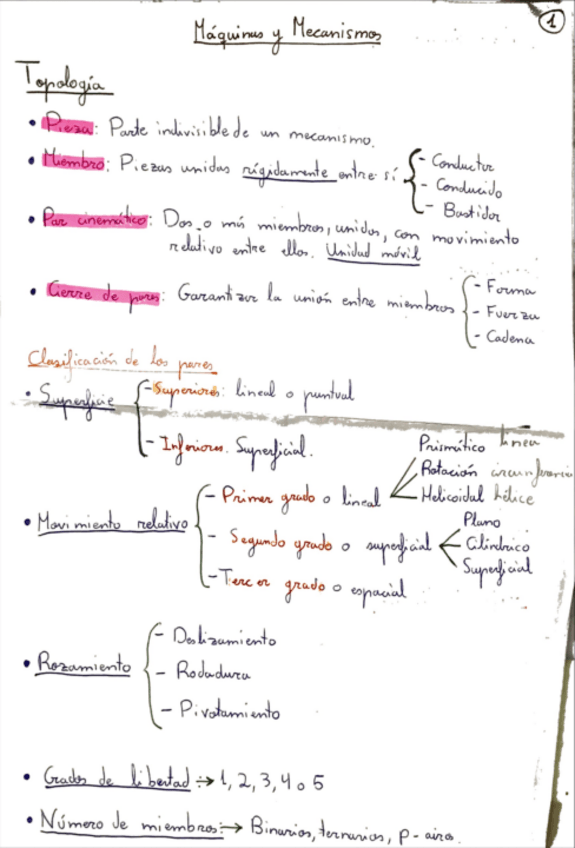 1
Máquinas y Mecanismos
Topología
• Pieza: Parte indivisible de un mecanismo.
• Miembro: Piezas unidas rígidamente entre sí
- Conductor
- Conducido
- Bastidor
• Par cinemático: Dos o más miembros, unidos, con movimiento
relativo entre ellos. Unidad móvil
• Cierre de pares: Garantizar la unión entre miembros
- Forma
- Fuerza
- Cadena
Clasificación de los pares
• Superficie
- Superiores: lineal o puntual
- Inferiores. Superficial.
• Movimiento relativo
- Primer grado o lineal
Prismático línea
Rotación circunferencia
Helicoidal hélice
- Segundo grado o superficial
Plano
Cilíndrico
Superficial
- Tercer grado o espacial
• Rozamiento
- Deslizamiento
- Rodadura
- Pivotamiento
• Grados de libertad :→ 1, 2, 3, 4 o 5
• Número de miembros :→ Binarios, ternarios, p-arios.